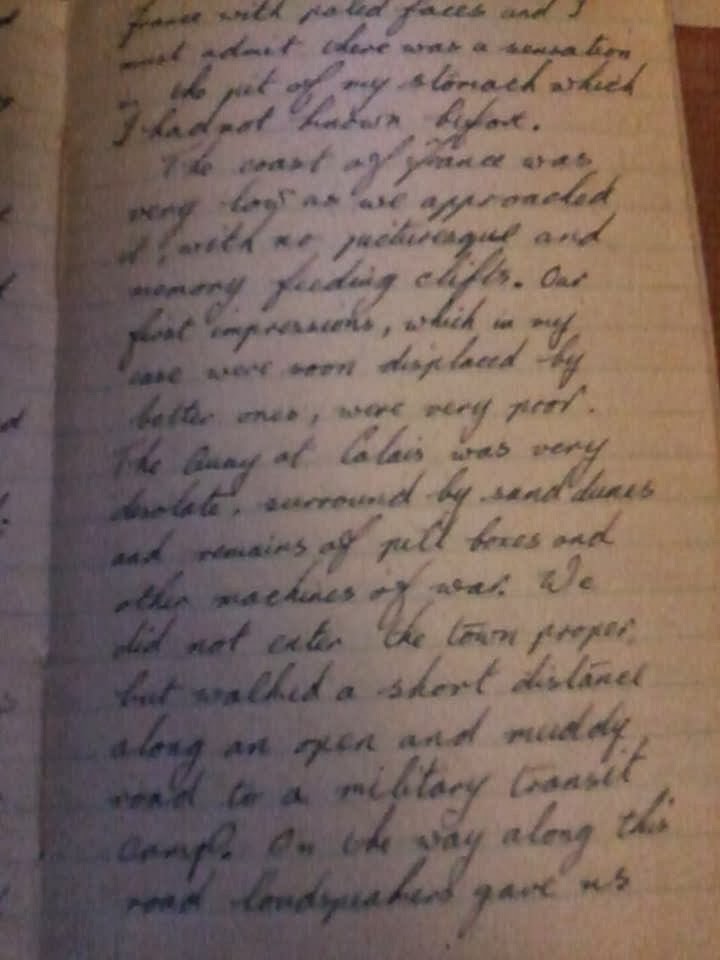 france with paled faces and I
must admit there was a sensation
in the pit of my stomach which
I had not known before.
The coast of france was
very low as we approached
it, with no picturesque and
memory feeding clifts. Our
first impressions, which in my
case were soon displaced by
better ones, were very poor.
The Quay at Calais was very
desolate, surround by sand dunes
and remains of pill boxes and
other machines of war. We
did not enter the town proper,
but walked a short distance
along an open and muddy
road to a military transit
camp. On the way along this
road loudspeakers gave us